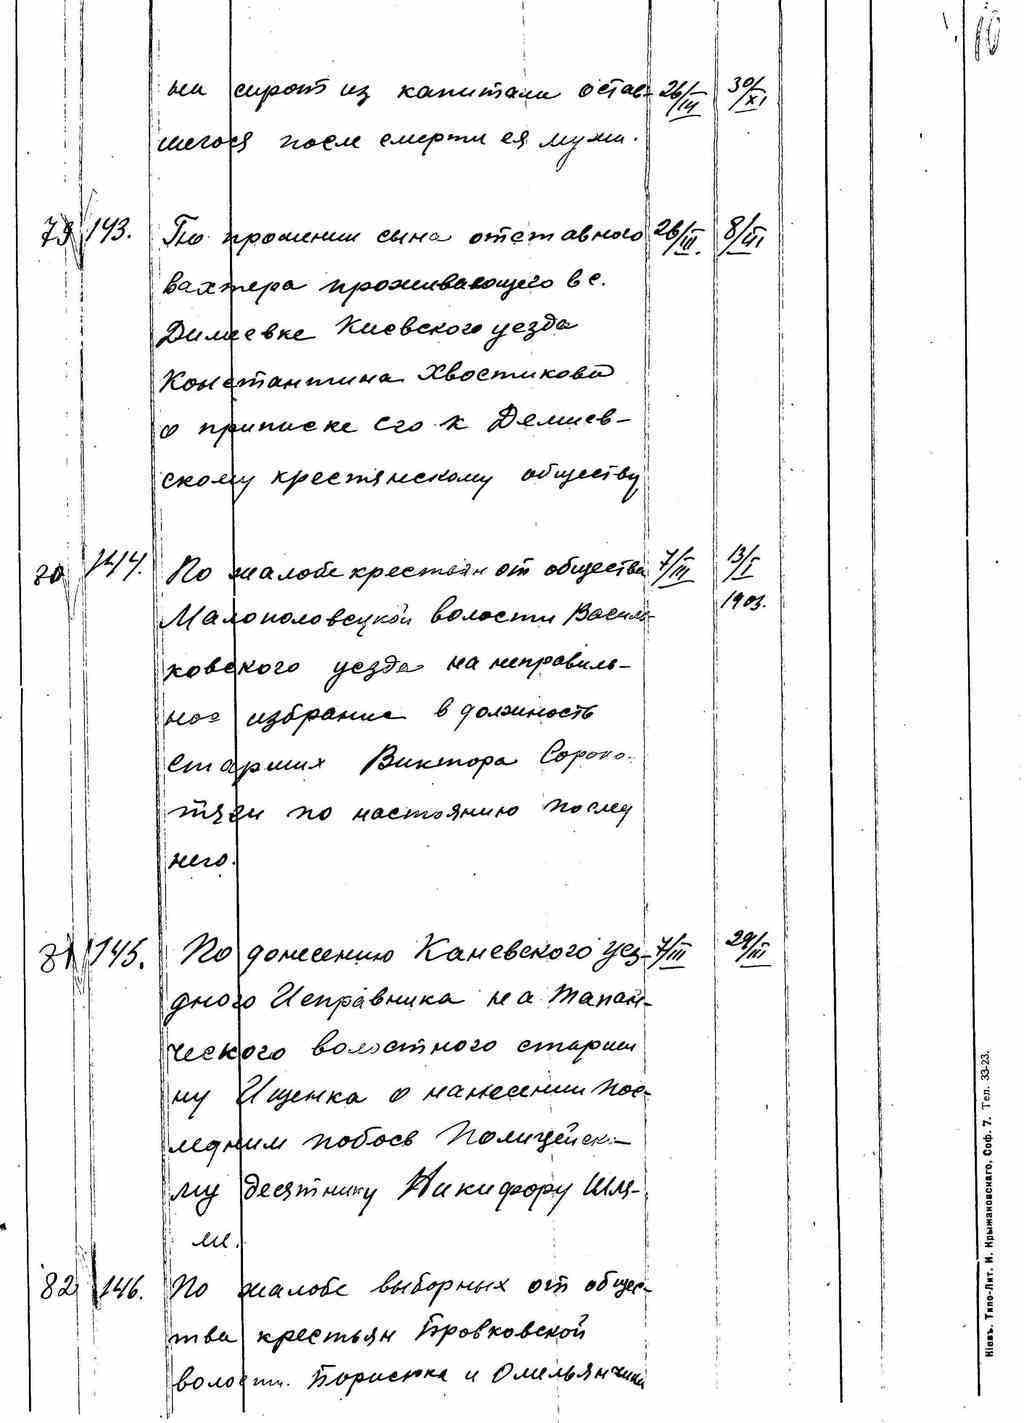 10
на сирот из капитала остав- 26/III 30/XI
шегося после смерти ея мужа.
79 143. По прошению сына отставного 26/III. 8/III
вахтера проживающего в с.
Димиевке Киевского уезда
Константина Хвостикова
о приписке его к Демиев-
скому крестянскому обществу
80 144. По жалобе крестьян от общества 7/III 13/I
1903.
Малополовецкой волости Василь-
ковского уезда на неправиль-
ное избрание в должность
старших Виктора Сороко-
тяги по настоянию послед
него.
81 145. По донесению Каневского уез- 7/III 29/III
дного Исправника на Тапан-
ческого волостного старши
ну Ищенка о нанесении пос-
ледним побоев Полицейско-
му десятнику Никифору Шля-
ме.
82 146. По жалобе выборных от общес-
тва крестьян Бровковской
волости. Борисюка и Омельянчика
Кіевъ. Типо-Лит. И. Крыжановскаго, Соф. 7. Тел. 33-23.